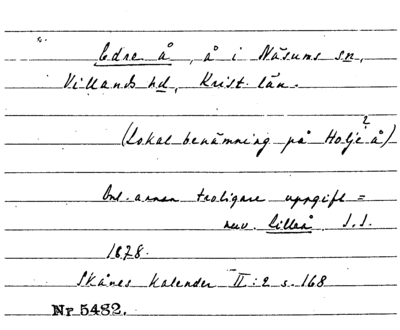 Edre å, å i Näsums sn,
Villands hd, Krist. län.
?
(Lokal benämning på Holje å)
Enl. annan troligare uppgift =
Lillån S.S.
1828.
Skånes Kalender II:2 s. 168
Nr 5482.